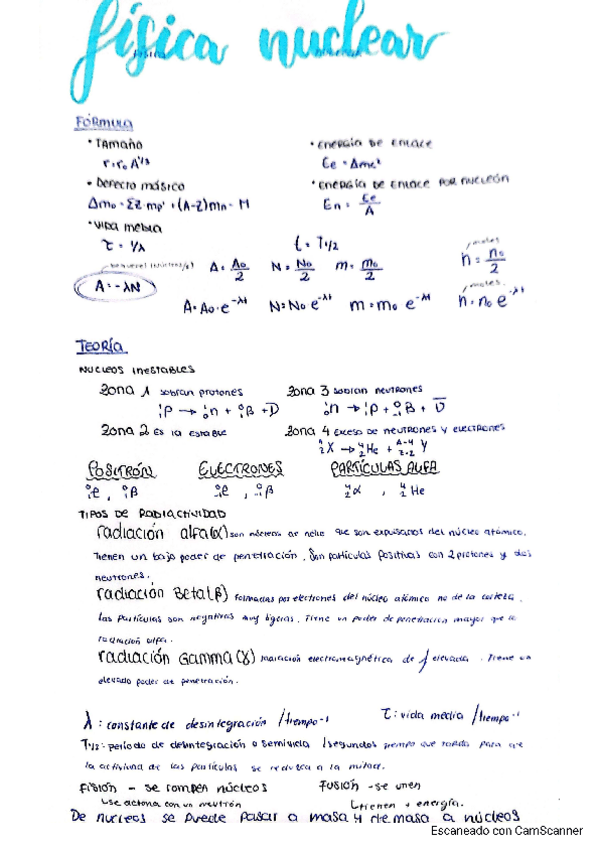 física nuclear
FÓRMULA
• TAMAÑO
r = r₀ A^1/3
• ENERGÍA DE ENLACE
Ee = Δmc²
• DEFECTO MÁSICO
Δm₀ = Σ Z·mp + (A-Z)mn - M
• ENERGÍA DE ENLACE POR NUCLEÓN
En = Ee/A
• VIDA MEDIA
τ = 1/λ
t = T1/2
A = A₀/2 N = N₀/2 m = m₀/2 n = n₀/2 moles
A = -λN
A = A₀·e^-λt N = N₀ e^-λt m = m₀ e^-λt n = n₀ e^-λt moles
TEORÍA
NUCLEOS INESTABLES
ZONA 1 sobran protones ZONA 3 sobran neutrones
ZONA 2 ES la ESTABLE ZONA 4 EXCESO DE NEUTRONES Y ELECTRONES
POSITRÓN ELECTRONES PARTÍCULAS ALFA
TIPOS DE RADIACTIVIDAD
radiación alfa(α) son núcleos de helio que son expulsados del núcleo atómico.
Tienen un bajo poder de penetración. Son partículas positivas con 2 protones y dos
neutrones.
radiación Beta(β) formadas por electrones del núcleo atómico no de la corteza.
Las partículas son negativas muy ligeras. Tiene un poder de penetración mayor que la
radiación alfa.
radiación Gamma(γ) radiación electromagnética de f elevada. Tiene un
elevado poder de penetración.
λ: constante de desintegración /tiempo⁻¹ τ: vida media /tiempo⁻¹
T1/2: periodo de desintegración o semivida /segundos tiempo que tarda para que
la actividad de las partículas se reduzca a la mitad.
FISIÓN - se rompen núcleos FUSIÓN - se unen
se con un neutrón tienen + energía.
De nucleos se puede pasar a masa y de masa a núcleos
Escaneado con CamScanner